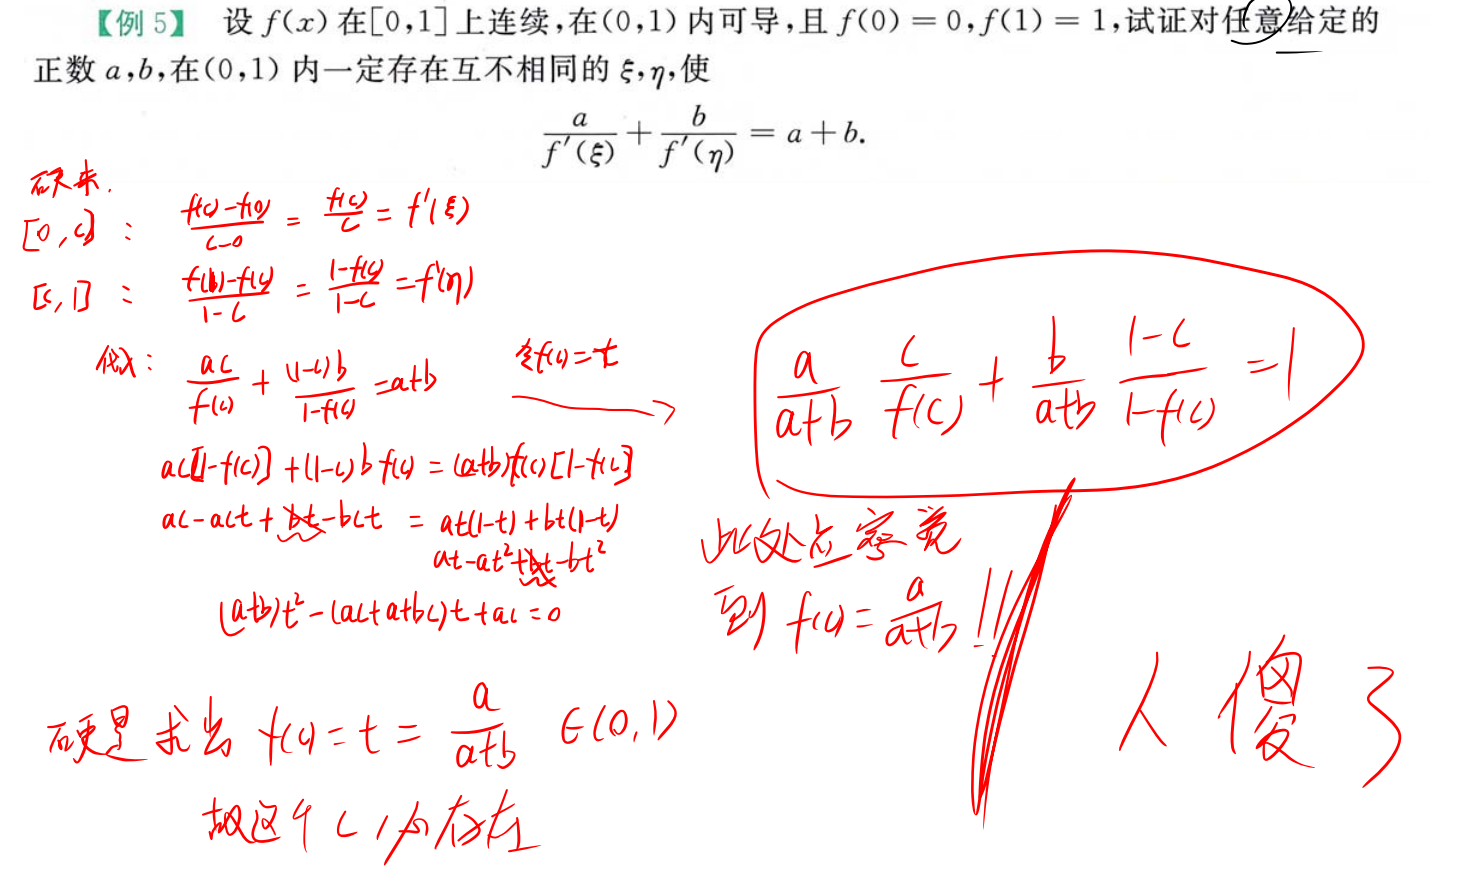 【例5】 设 f(x) 在[0,1]上连续,在(0,1)内可导,且 f(0) = 0, f(1) = 1,试证对任意给定的
正数 a,b,在(0,1)内一定存在互不相同的 ξ,η,使
a/f′(ξ) + b/f′(η) = a + b.
硬来.
[0,c]: (f(c)-f(0))/(c-0) = f(c)/c = f'(ξ)
[c,1]: (f(1)-f(c))/(1-c) = (1-f(c))/(1-c) = f'(η)
代入: ac/f(c) + (1-c)b/(1-f(c)) = a+b 令f(c)=t
ac[1-f(c)]+(1-c)bf(c) = (a+b)f(c)[1-f(c)]
ac-act+bt-bct = at(1-t)+bt(1-t)
at-at²+bt-bt²
(a+b)t²-(ac+a+bc)t+ac=0
硬是求出 f(c)=t= a/(a+b) ∈(0,1)
故这个c必存在
a/(a+b) c/f(c) + b/(a+b) (1-c)/(1-f(c)) = 1
此处应察觉
到 f(c)= a/(a+b) !!
人傻了